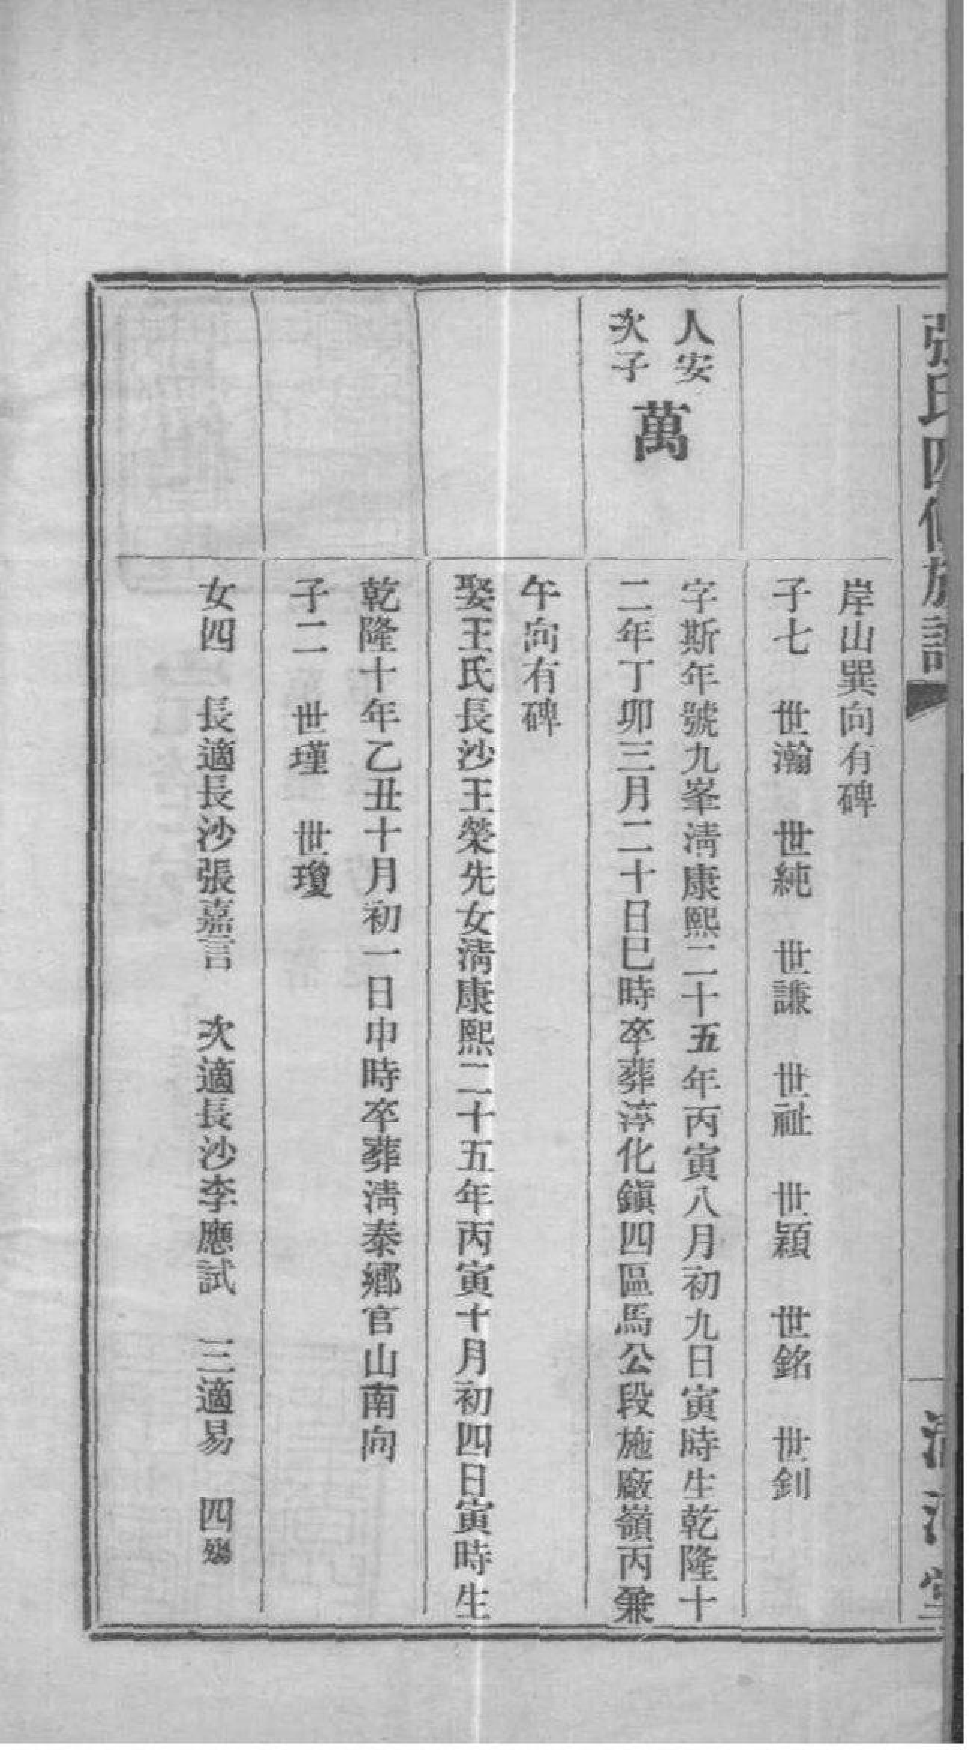 張氏四修族譜
清河堂
岸山巽向有碑
子七 世瀚 世純 世謙 世祉 世穎 世銘 世釗
人安
次子
萬
字斯年號九峯淸康熙二十五年丙寅八月初九日寅時生乾隆十
二年丁卯三月二十日巳時卒葬淳化鎭四區馬公段施廠嶺丙兼
午向有碑
娶王氏長沙王榮先女淸康熙二十五年丙寅十月初四日寅時生
乾隆十年乙丑十月初一日申時卒葬淸泰鄉官山南向
子二 世瑾 世瓊
女四 長適長沙張嘉言 次適長沙李應試 三適易 四殤